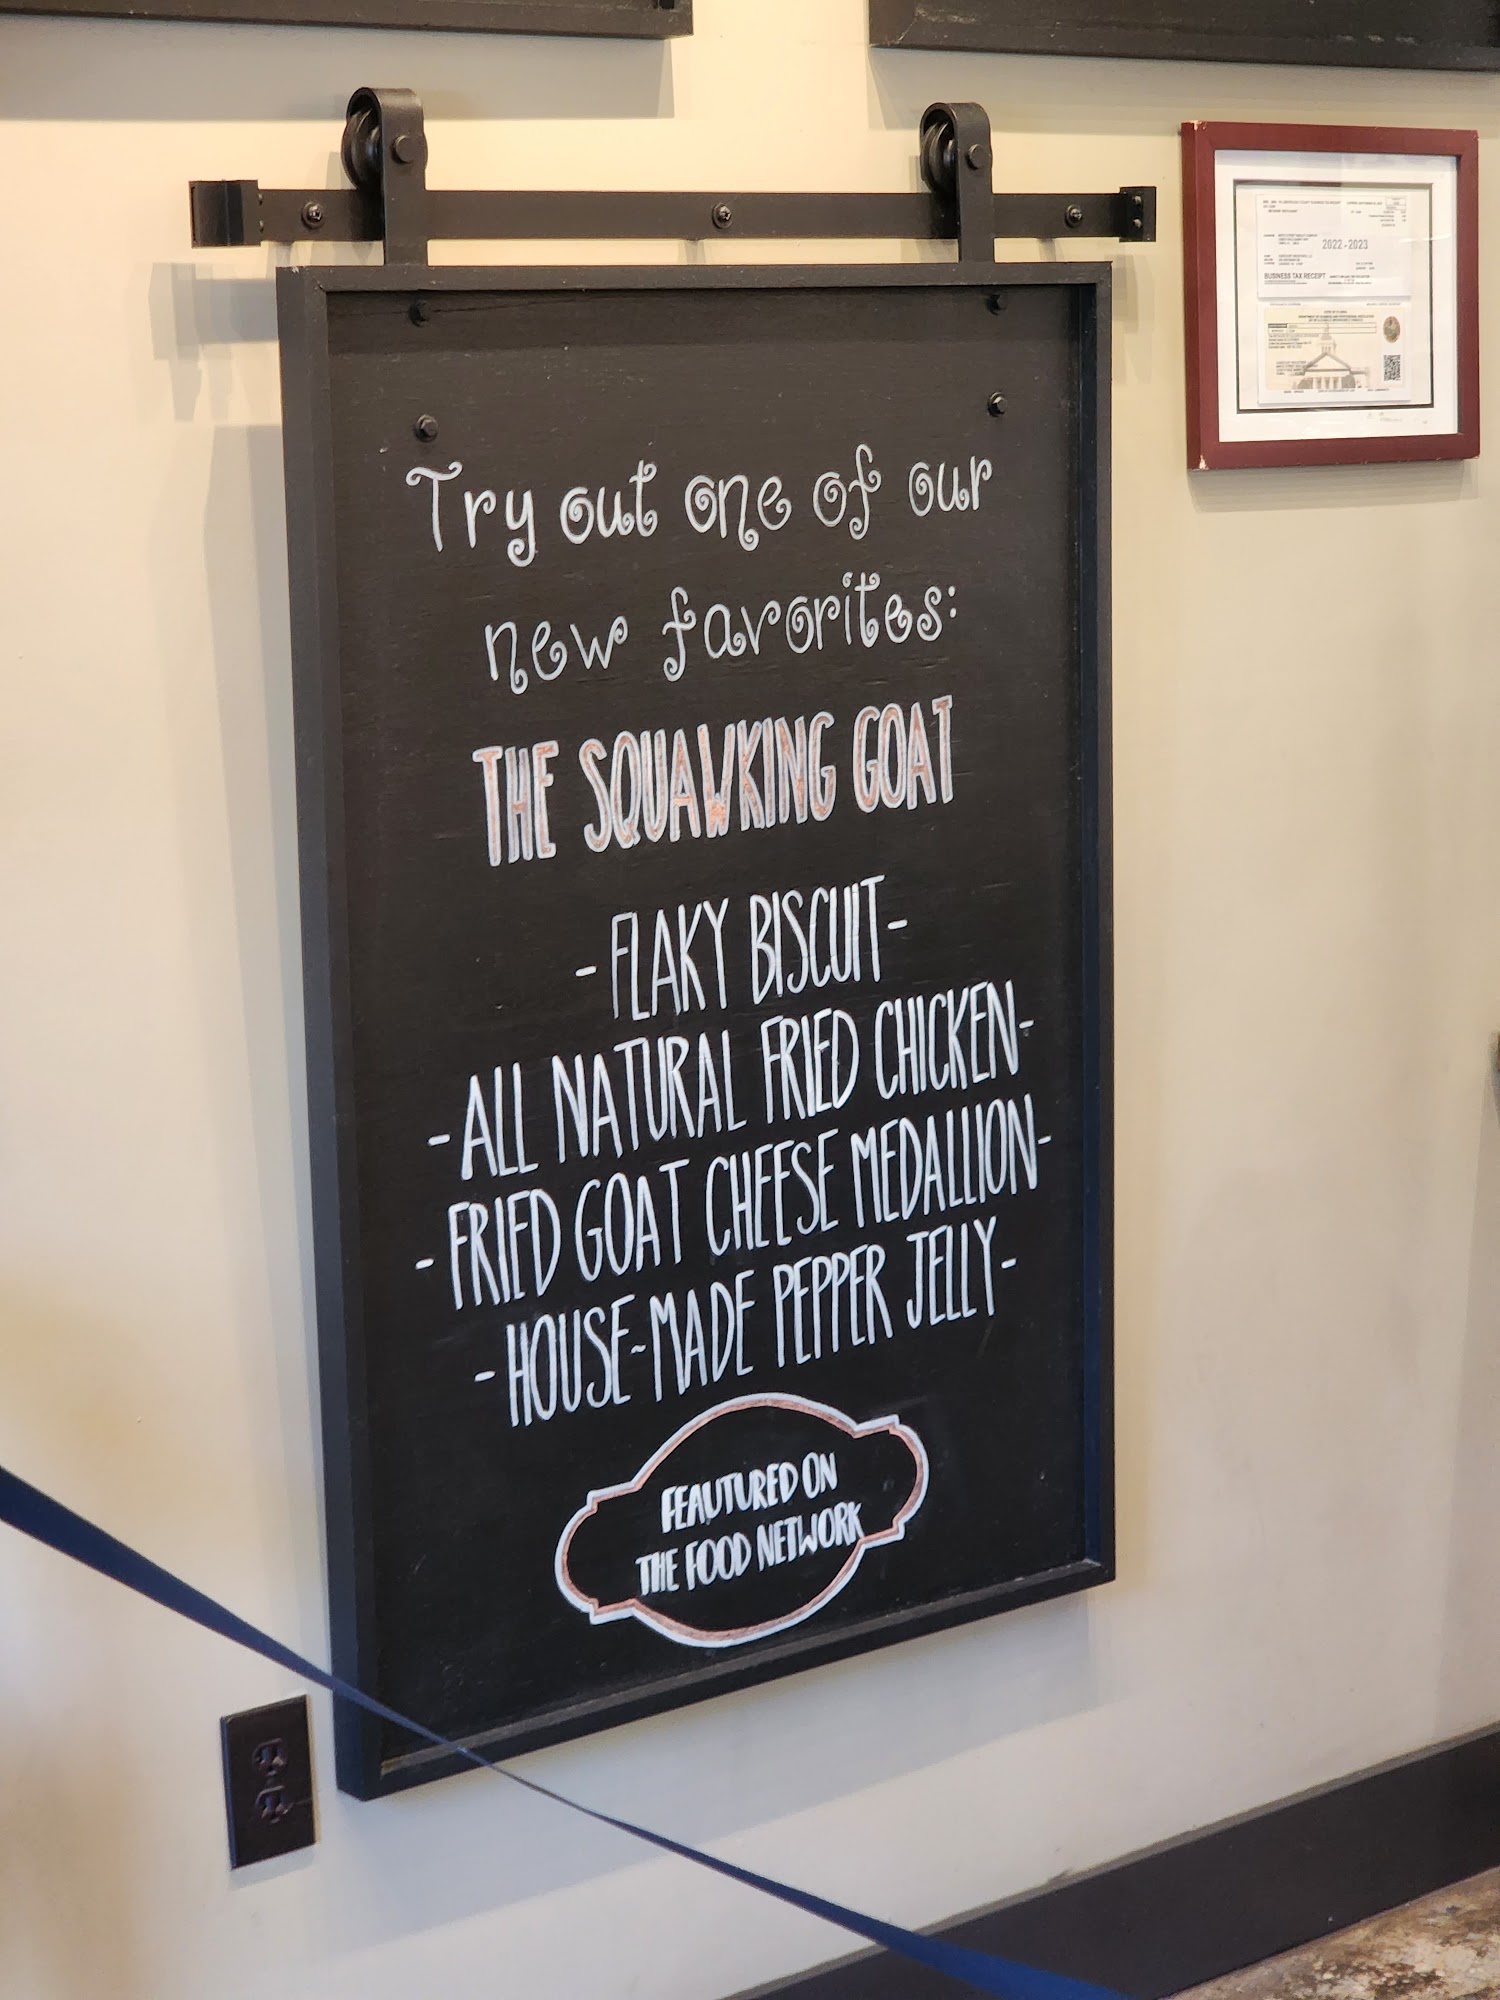 Try out one of our
new favorites:
THE SQUAWKING GOAT
-FLAKY BISCUIT-
-ALL NATURAL FRIED CHICKEN-
-FRIED GOAT CHEESE MEDALLION-
-HOUSE-MADE PEPPER JELLY-
FEAUTURED ON
THE FOOD NETWORK
2022-2023
BUSINESS TAX RECEIPT